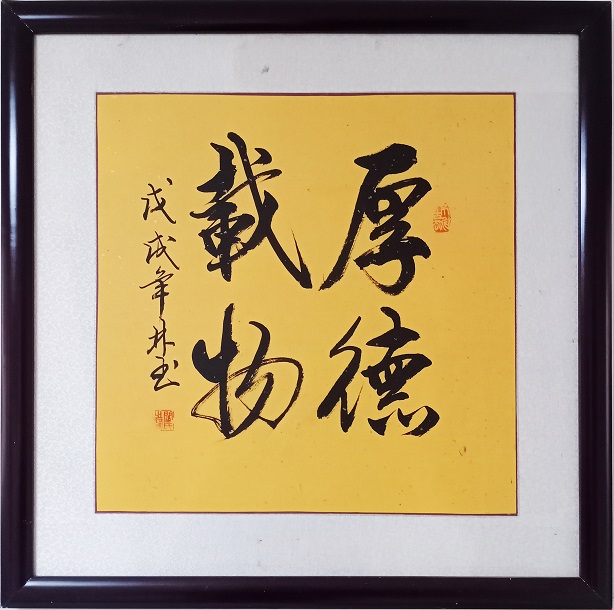 厚德
載物
戊戌年林玉